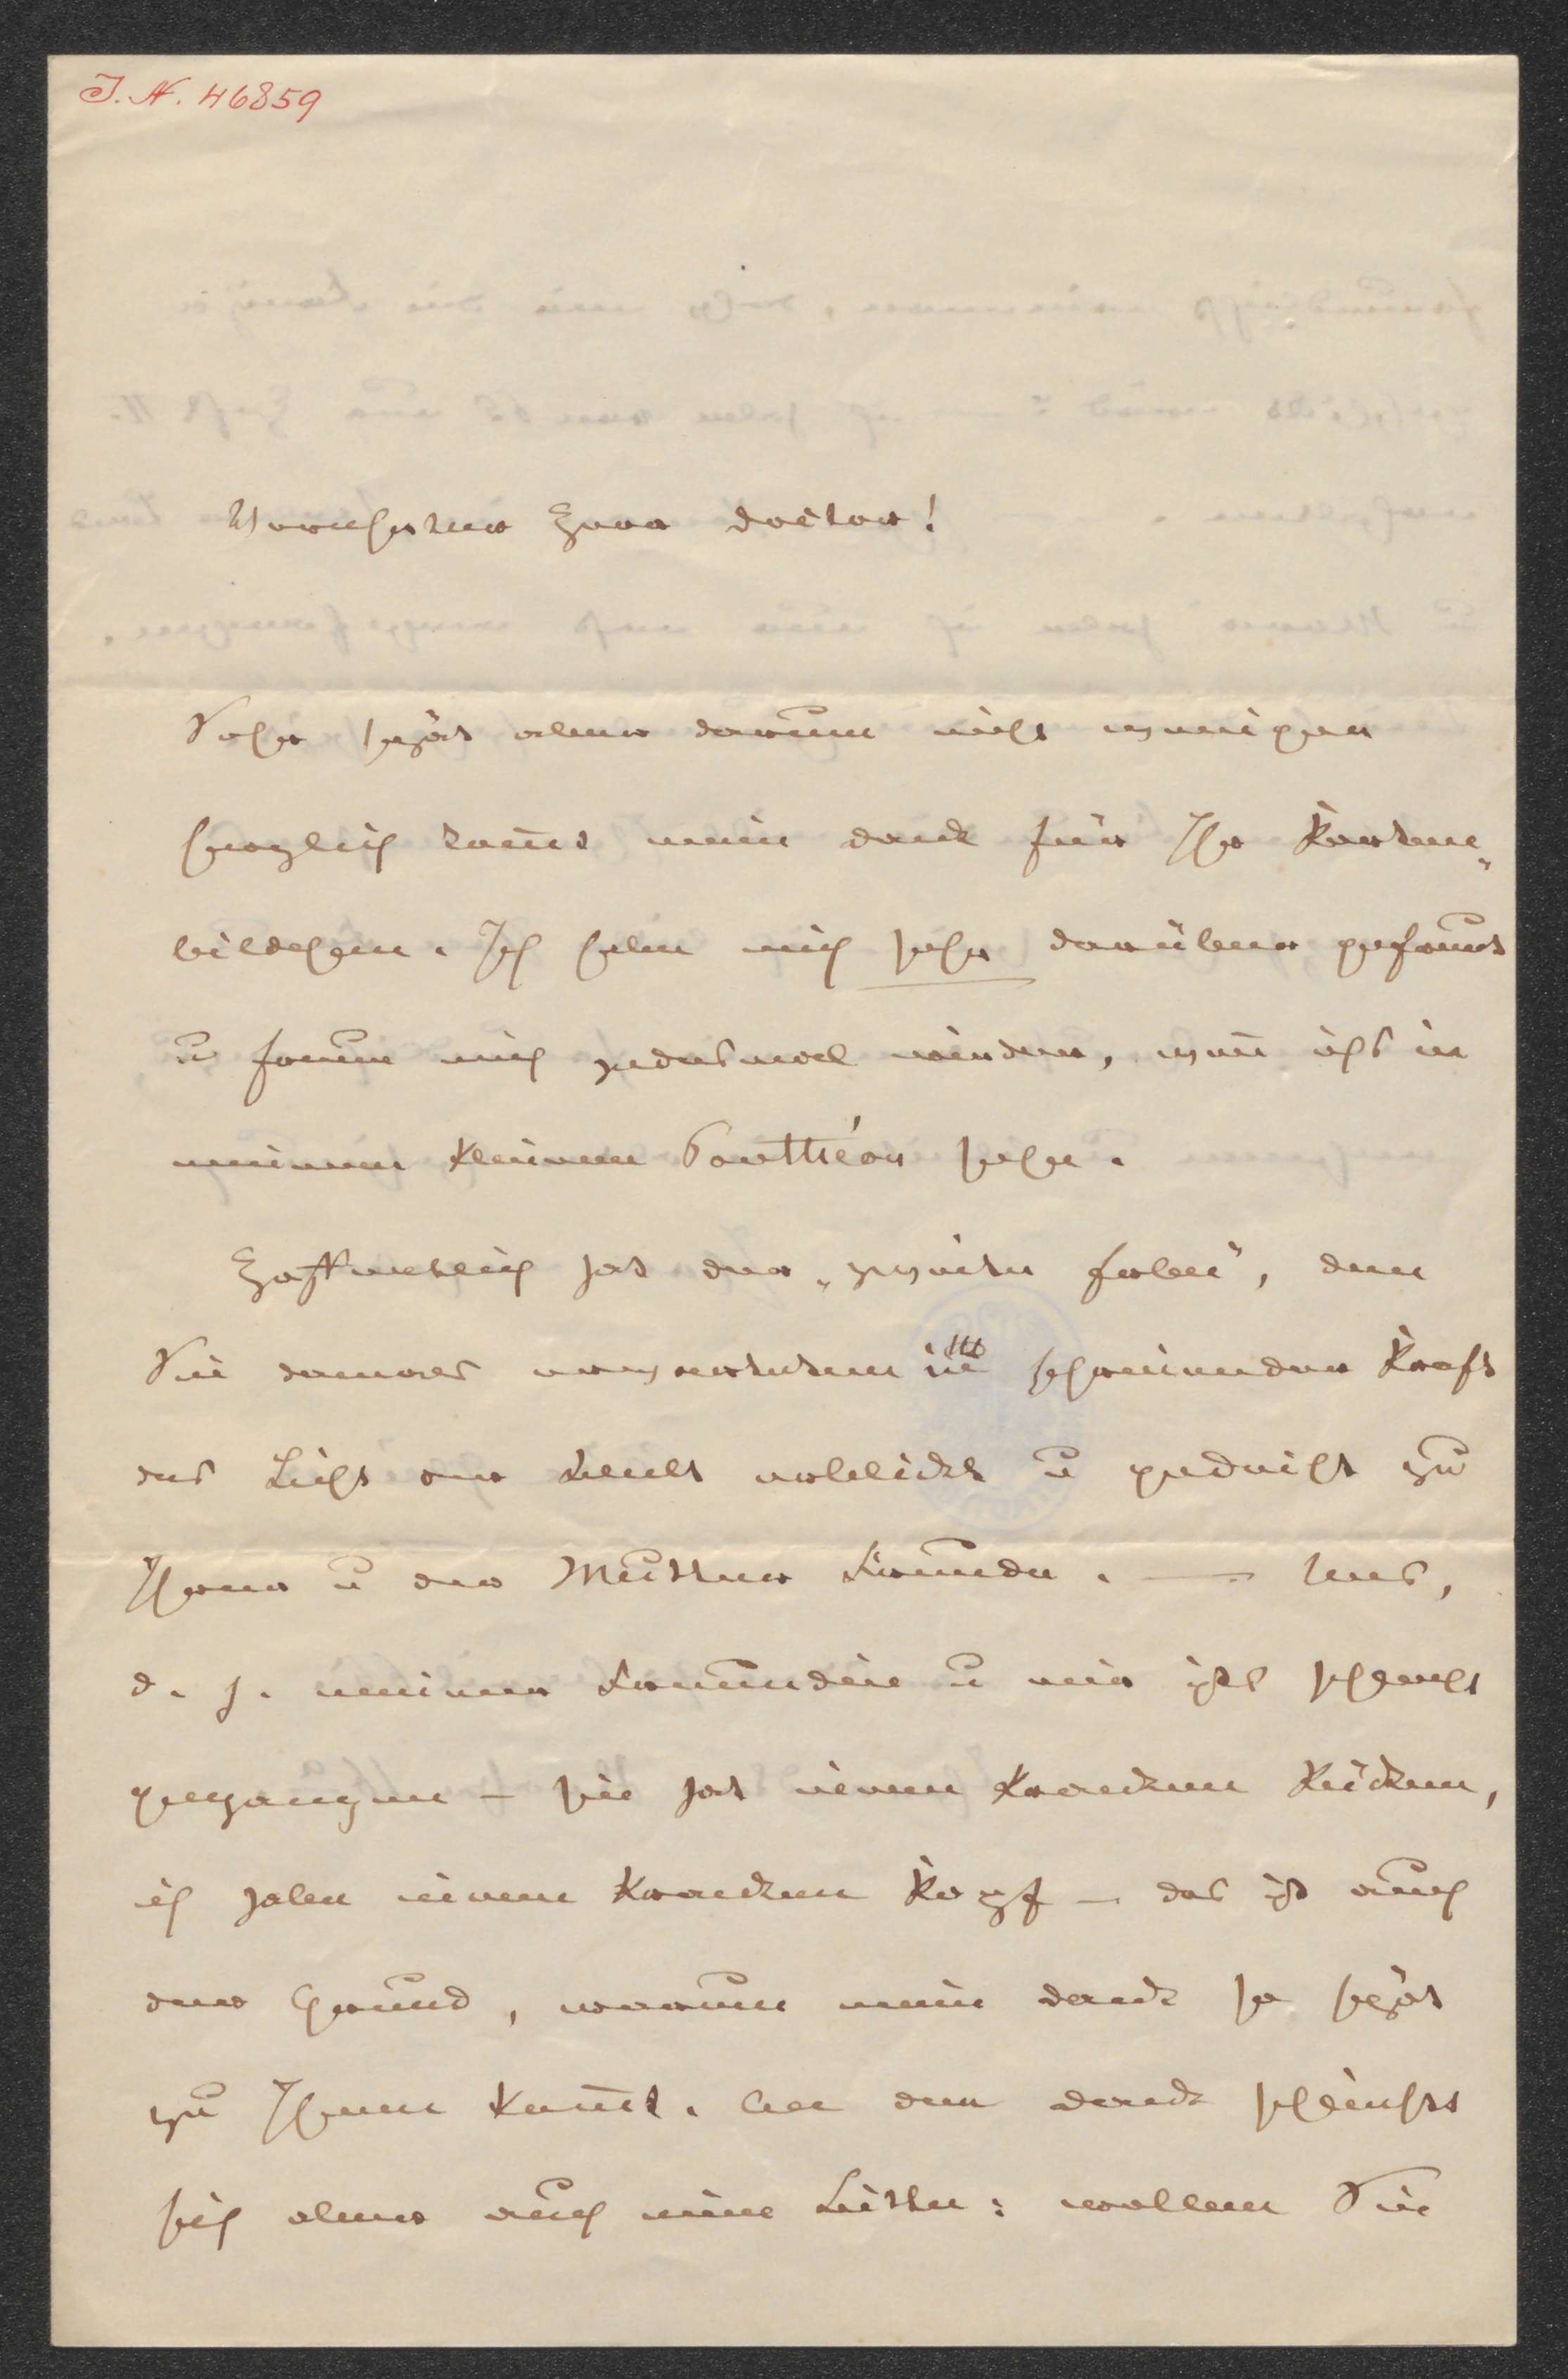 I. N. 46859
Verehrter Herr Doctor!
Sehr spät aber darum nicht weniger
herzlich komt mein Dank für Ihr Karten-
bildchen. Ich habe mich sehr darüber gefreut
u freue mich jedesmal wieder, wen ichs in
meinem kleinen Panthéon sehe.
Hoffentlich hat der „zweite Faben", den
Sie damals erwarteten in schreiender Kraft
das Licht der Welt erblickt u gedeiht zu
Ihrer u der Mutter Freude. — Uns,
d. h. meiner Freundin u mir ists schlecht
gegangen – sie hat einen kranken Rücken,
ich habe einen kranken Kopf – das ist auch
der Grund, warum mein Dank so spät
zu Ihnen komt. An den Dank schließt
sich aber auch eine Bitte: wollen Sie